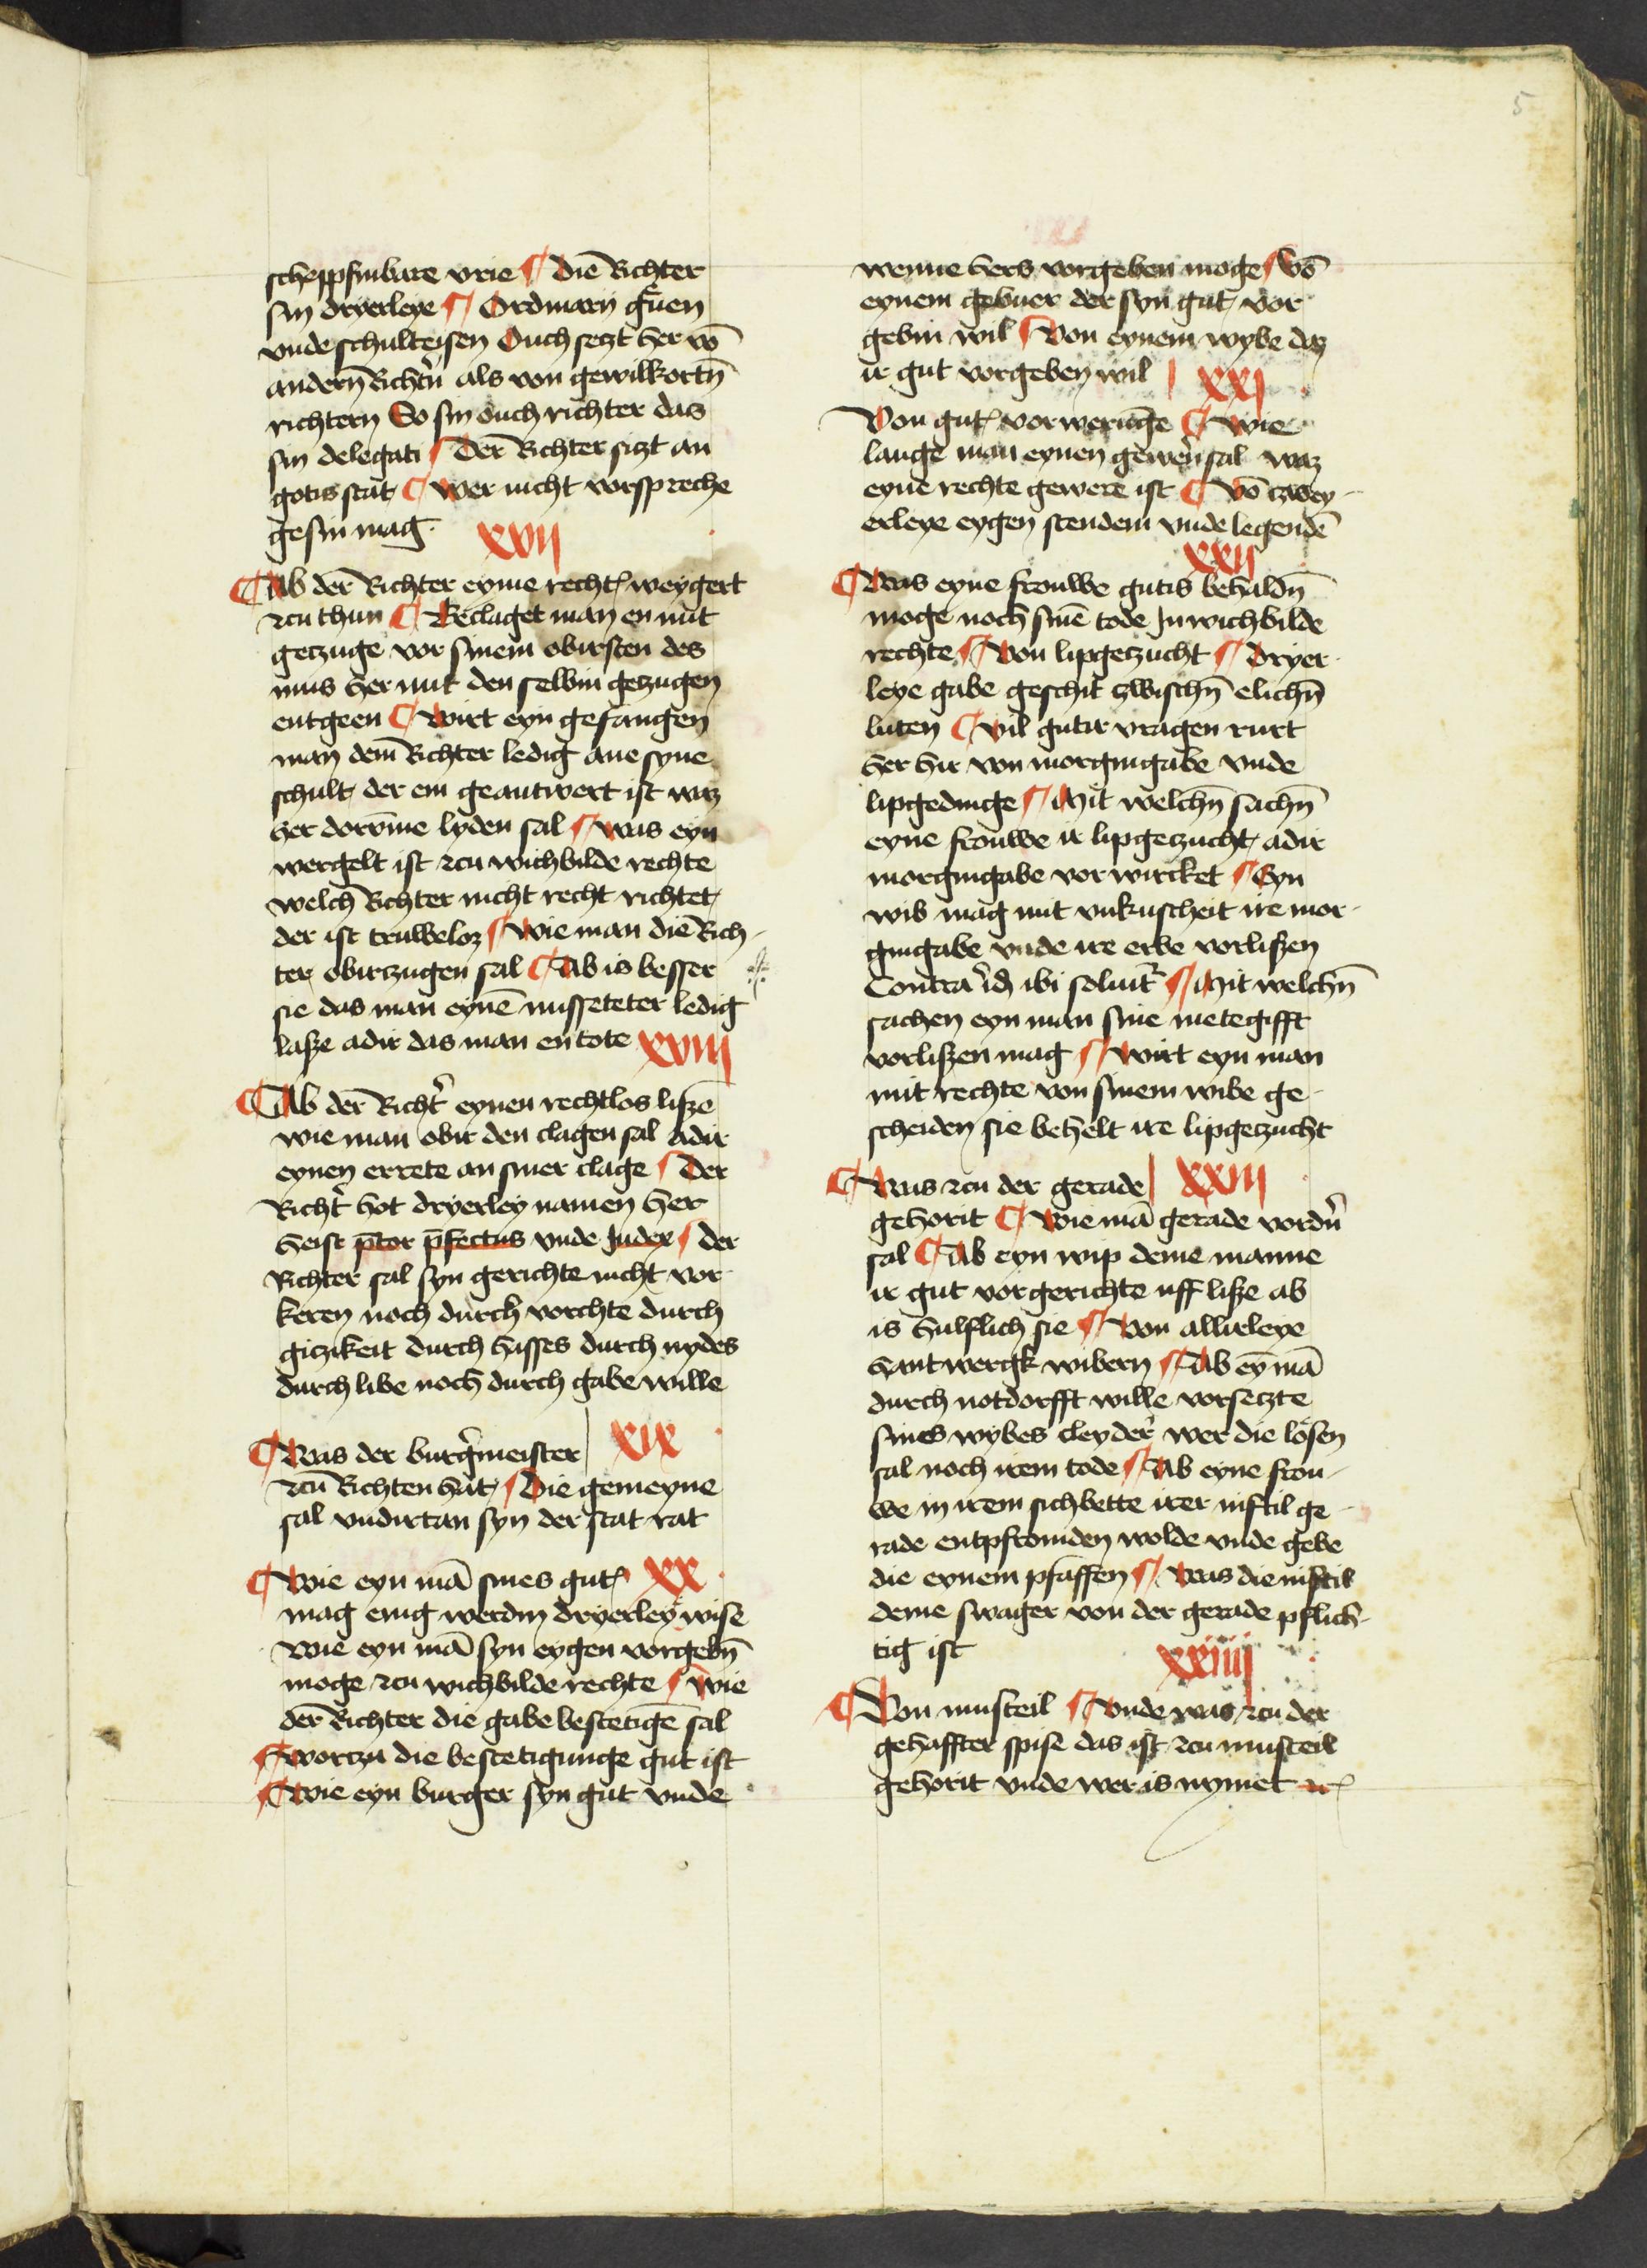 5
scheppfinbare vrie ¶ Die Richter
sin dryerleye ¶ Ordinarij grauen
vnde schulteisen Ouch setzt her vō
andern Richtn̄ als von gewilkortn̄
richtern So sin ouch richter das
sin delegati ¶ Der Richter sitzt an
gotis stat ¶ Wer nicht vorspreche
gesin mag xvij
¶ Ab der Richter eyme recht weygert
zcu thun ¶ Beclaget man en mit
getzuge vor sinem obirsten des
mus her mit den selbin getzugen
entgeen ¶ Wirt eyn gefangen
man dem Richter ledig ane syne
schult der em geantwert ist waz
her dorvme lyden sal ¶ Was eyn
wergelt ist zcu wichbilde rechte
welch Richter nicht recht richtet
der ist truweloz ¶ Wie man die Rich-
ter obirtzugen sal ¶ Ab is besser
sie das man eynē misseteter ledig
lasze adir das man en tote xviij
¶ Ab der Richt' eynen rechtlos liszē
wie man obir den clagen sal Adir
eynen errete an siner clage ¶ Der
Richt' hot dryerley namen her
heist p̄tor p̄fectus vnde Judex ¶ der
Richter sal syn gerichte nicht vor
keren noch durch vorchte durch
gitzikeit durch hasses durch nydes
durch libe noch durch gabe wille
¶ Was der burg'meister xix
zcu Richten hat ¶ Die gemeyne
sal vndirtan syn der stat rat
¶ Wie eyn mā sines gut xx
mag enig werdin dryerley wise
Wie eyn mā syn eygen vorgebn̄
moge zcu wichbilde rechte ¶ Wie
der Richter die gabe bestetigē sal
¶ Wortzu die bestetigunge gut ist
¶ Wie eyn burger syn gut vnde
wenne hers vorgeben moge ¶ Vō
eynem gebuer der syn gut vor
gebin wil ¶ Von eynem wybe daz
ir gut vorgeben wil xxj
Von gut vorwerūge ¶ Wie
lange man eynen gewern sal waz
eyne rechte gewere ist ¶ Vō tzwey-
erleye eygen stendem vnde legendē
xxij
¶ Was eyne frouwe gutis behaldn̄
moge noch sinē tode In wichbilde
rechte ¶ Von lipgetzucht ¶ Dryer
leye gabe geschit tzwischn̄ elichn̄
luten ¶ Vil gutir vragen rurt
her hir von morgingabe vnde
lipgedinge ¶ Mit welchn̄ sachn̄
eyne frouwe ir lipgetzucht adir
morgingabe vorwircket ¶ Eyn
wib mag mit vnkuscheit ire mor-
gingabe vnde ire erbe vorliszen
Contra ibi soluit' ¶ Mit welchn̄
sachen eyn man sine metegifft
vorliszen mag ¶ Wirt eyn man
mit rechte von sinem wibe ge-
scheiden sie behelt ire lipgetzucht
¶ Was zcu der gerade xxiij
gehorit ¶ Wie mā gerade vordn̄
sal ¶ Ab eyn wip deme manne
ir gut vorgerichte uff lisze ab
is hulflich sie ¶ Von allirleye
hantwergk wibern ¶ Ab eȳ mā
durch notdorfft wille vorsetzte
sines wybes cleyder wer die losen
sal noch irem tode ¶ Ab eyne frou-
we in irem sichbette irer niftil ge-
rade entpfromden wolde vnde gebe
die eynem pfaffen ¶ Was die niftil
deme swager von der gerade pflich-
tig ist xxiiij
¶ Von musteil ¶ Vnde was zcu der
gehaffter spise das ist zcu musteil
gehorit vnde wer is nymet